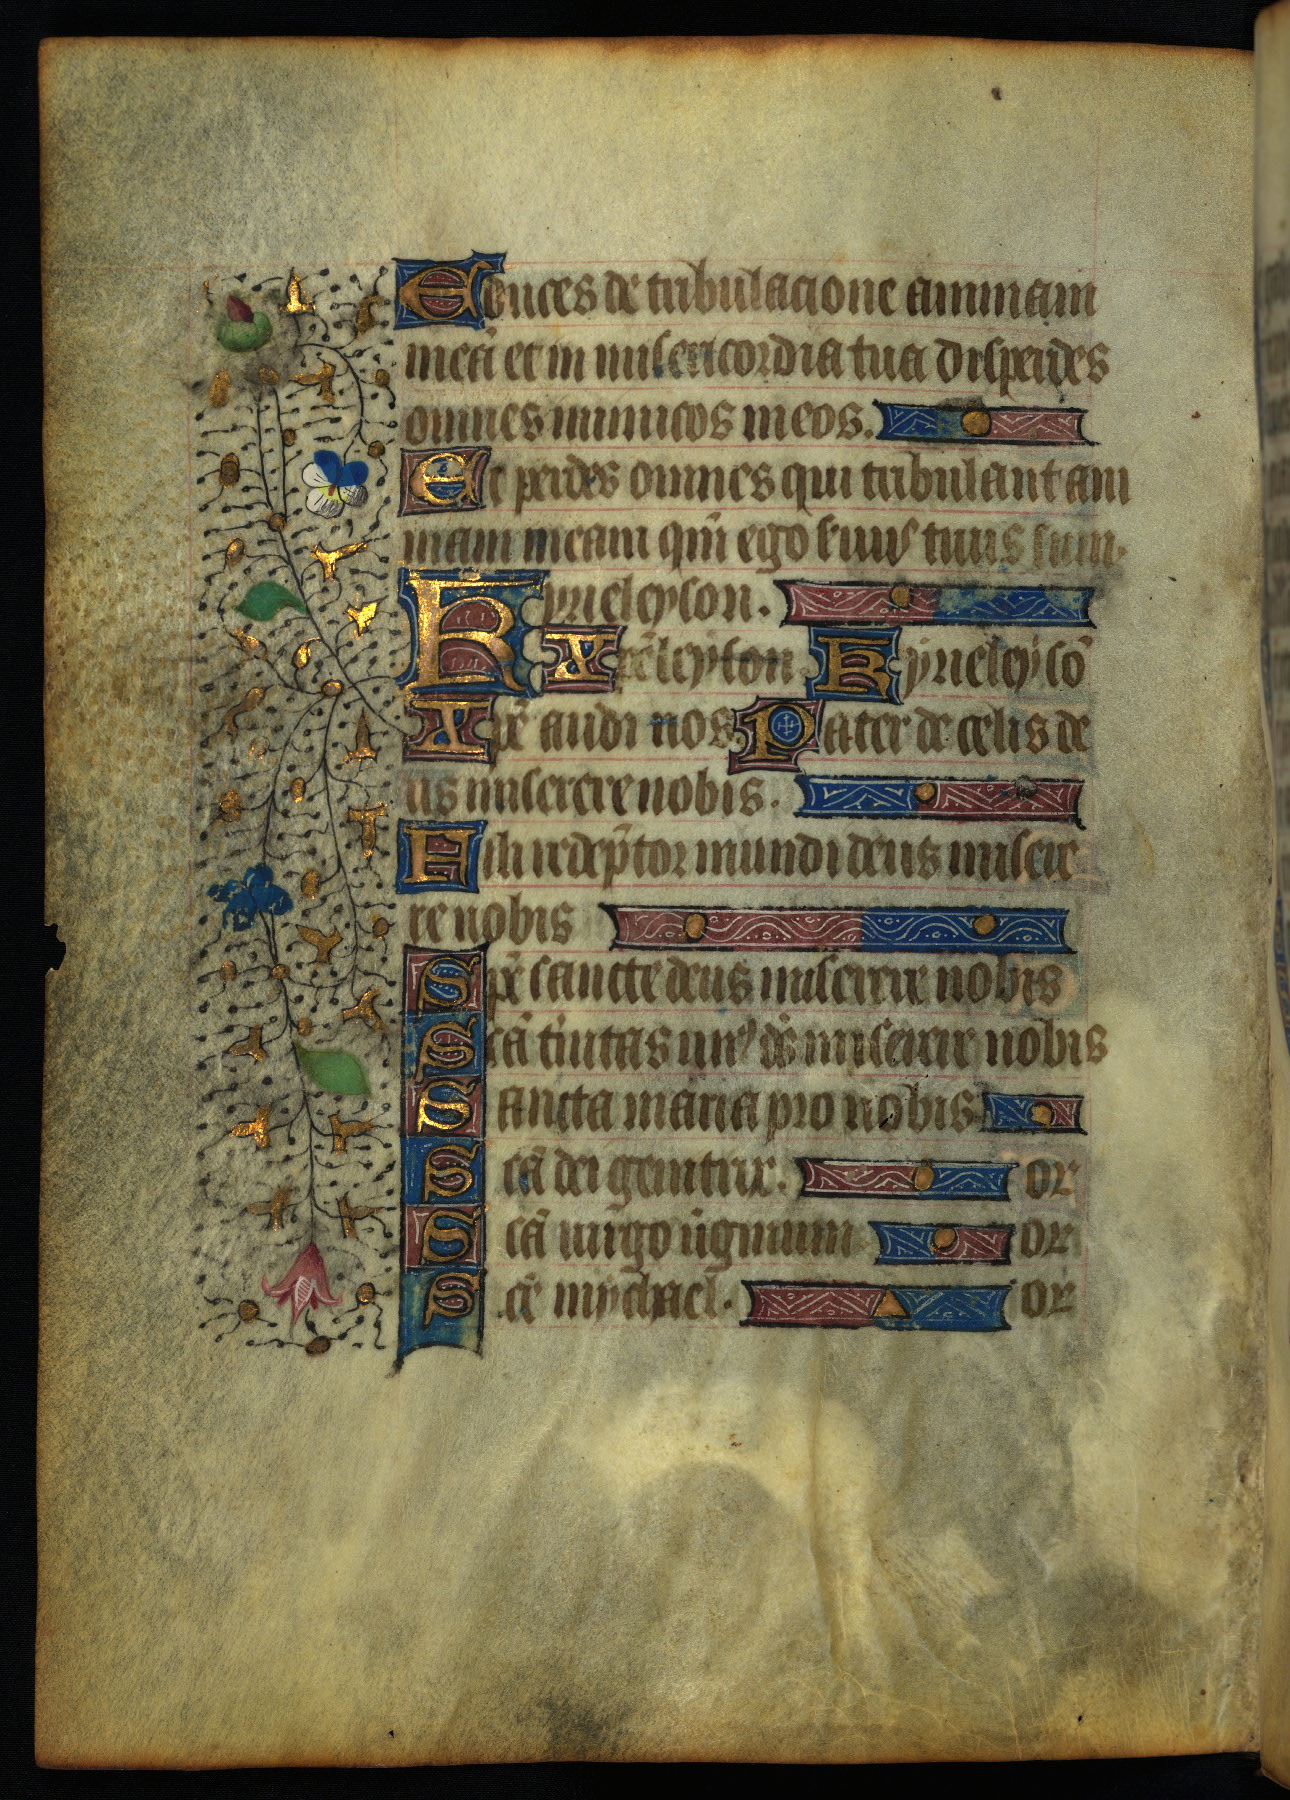 Educes de tribulacione animam
meā et in misericordia tua disperdes
omnes inimicos meos.
Et perdes omnes qui tribulant ani
mam meam qm̄ ego suus tuus sum.
Kyrieleyson.
Xp̄eleyson. Kyrieleyso᷒
Xp̄e audi nos. Pater de celis de
us miserere nobis.
Fili redēptor mundi deus misere
re nobis
Sp̄c sancte deus miserere nobis
Scā t͛nitas un᷒ ds̄ miserere nobis
Sancta maria pro nobis
Scā dei genitrix. or
Scā uirgo u͛ginum or
Scē mychael. or